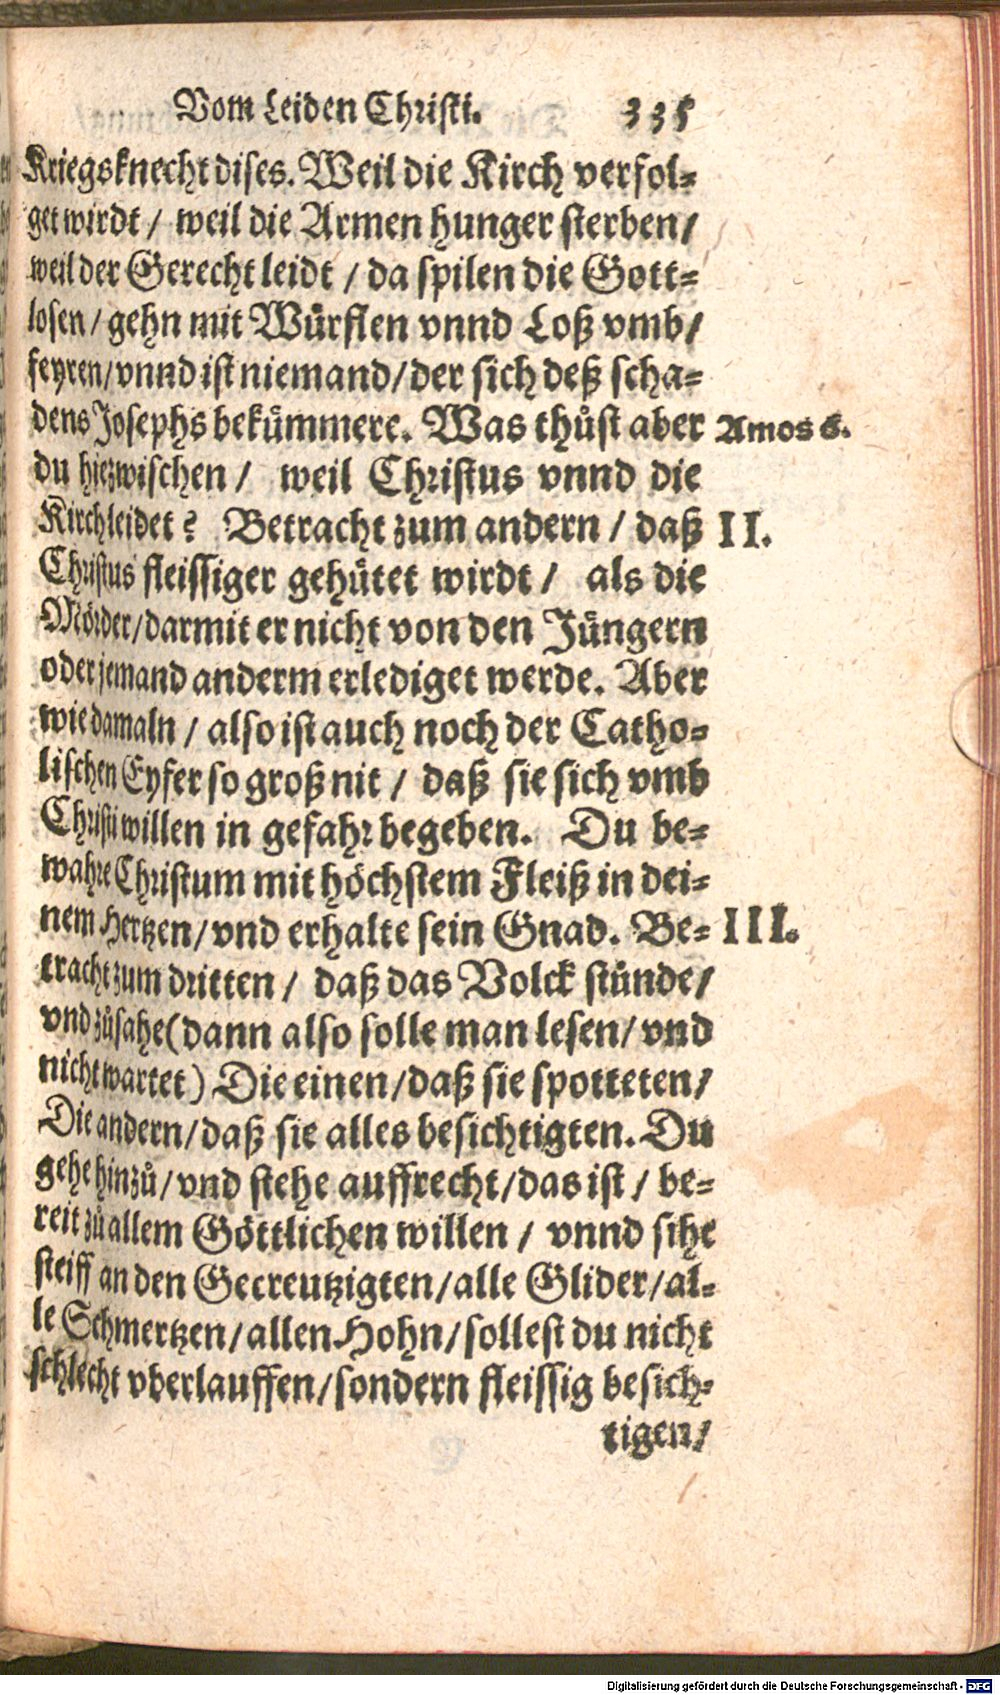 Vom Leiden Christi. 335
Kriegsknecht dises. Weil die Kirch verfol-
get wirdt / weil die Armen hunger sterben /
weil der Gerecht leidt / da spilen die Gott-
losen / gehn mit Wuͤrflen vnnd Loß vmb /
feyren / vnnd ist niemand / der sich deß scha-
dens Josephs bekuͤmmere. Was thuͦst aber Amos 6.
du hiezwischen / weil Christus vnnd die
Kirch leidet? Betracht zum andern / daß II.
Christus fleissiger gehuͤtet wirdt / als die
Moͤrder / darmit er nicht von den Juͤngern
oder jemand anderm erlediget werde. Aber
wie damaln / also ist auch noch der Catho-
lischen Eyfer so groß nit / daß sie sich vmb
Christi willen in gefahr begeben. Du be-
wahre Christum mit hoͤchstem Fleiß in dei-
nem Hertzen / vnd erhalte sein Gnad. Be- III.
tracht zum dritten / daß das Volck stuͤnde /
vnd zuͦsahe (dann also solle man lesen / vnd
nicht wartet) Die einen / daß sie spotteten /
Die andern / daß sie alles besichtigten. Du
gehe hinzuͦ / vnd stehe auffrecht / das ist / be-
reit zuͦ allem Goͤttlichen willen / vnnd sihe
steiff an den Gecreutzigten / alle Glider / al-
le Schmertzen / allen Hohn / sollest du nicht
schlecht vberlauffen / sondern fleissig besich-
tigen /
Digitalisierung gefördert durch die Deutsche Forschungsgemeinschaft - DFG